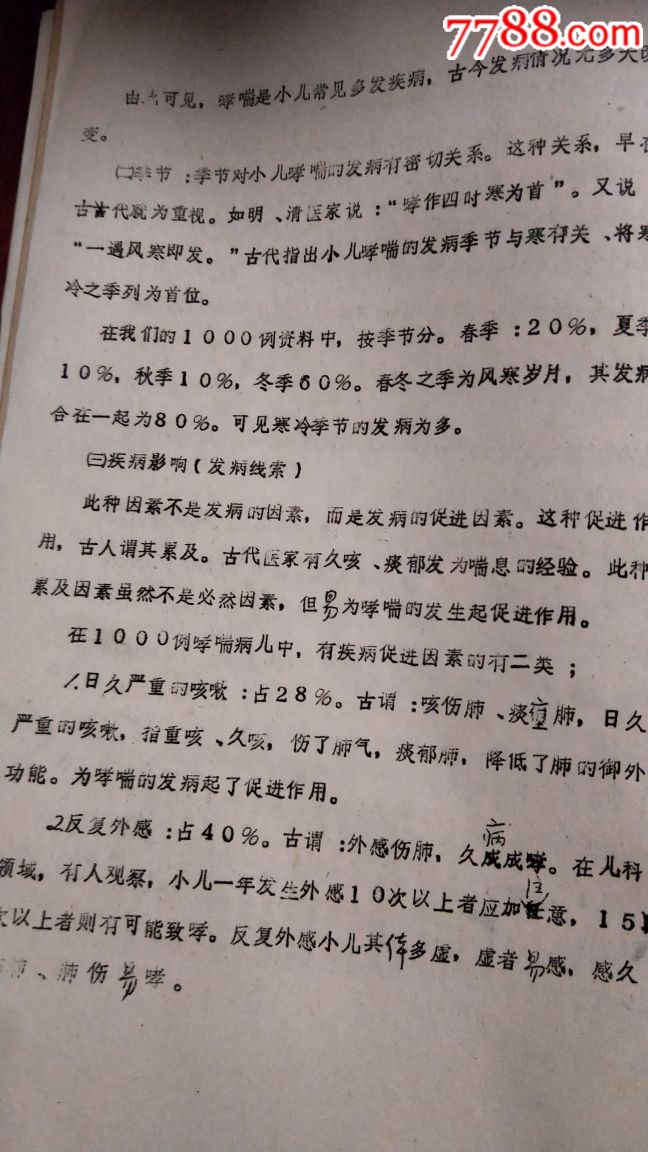 7788.com
由此可见，哮喘是小儿常见多发疾病，古今发病情况无多大改
变。
㈡季节：季节对小儿哮喘的发病有密切关系。这种关系，早在
古古代就为重视。如明、清医家说：“哮作四时寒为首”。又说
“一遇风寒即发。”古代指出小儿哮喘的发病季节与寒有关、将寒
冷之季列为首位。
在我们的1000例资料中，按季节分。春季：20%，夏季
10%，秋季10%，冬季60%。春冬之季为风寒岁片，其发病
合在一起为80%。可见寒冷季节的发病为多。
㈢疾病影响（发病线索）
此种因素不是发病的因素，而是发病的促进因素。这种促进作
用，古人谓其累及。古代医家有久咳、痰郁发为喘息的经验。此种
累及因素虽然不是必然因素，但易为哮喘的发生起促进作用。
在1000例哮喘病儿中，有疾病促进因素的有二类；
1.日久严重的咳嗽：占28%。古谓：咳伤肺、痰壅肺，日久
严重的咳嗽，指重咳、久咳，伤了肺气，痰郁肺，降低了肺的御外
功能。为哮喘的发病起了促进作用。
2.反复外感：占40%。古谓：外感伤肺，久病成哮。在儿科
领域，有人观察，小儿一年发生外感10次以上者应加注意，15
次以上者则有可能致哮。反复外感小儿其体多虚，虚者易感，感久
肺、肺伤易哮。